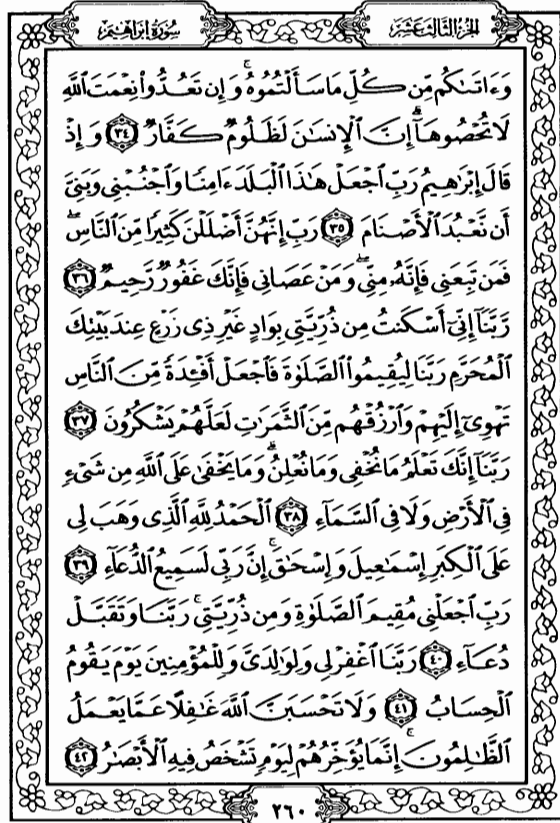 سُورَةُ إِبْرَاهِيمَ
الجُزْءُ الثَّالِثَ عَشَرَ
وَءَاتَىٰكُم مِّن كُلِّ مَا سَأَلْتُمُوهُ ۚ وَإِن تَعُدُّوا۟ نِعْمَتَ ٱللَّهِ
لَا تُحْصُوهَآ ۗ إِنَّ ٱلْإِنسَٰنَ لَظَلُومٌ كَفَّارٌ ۝٣٤ وَإِذْ
قَالَ إِبْرَٰهِيمُ رَبِّ ٱجْعَلْ هَٰذَا ٱلْبَلَدَ ءَامِنًا وَٱجْنُبْنِى وَبَنِىَّ
أَن نَّعْبُدَ ٱلْأَصْنَامَ ۝٣٥ رَبِّ إِنَّهُنَّ أَضْلَلْنَ كَثِيرًا مِّنَ ٱلنَّاسِ ۖ
فَمَن تَبِعَنِى فَإِنَّهُۥ مِنِّى ۖ وَمَنْ عَصَانِى فَإِنَّكَ غَفُورٌ رَّحِيمٌ ۝٣٦
رَّبَّنَآ إِنِّىٓ أَسْكَنتُ مِن ذُرِّيَّتِى بِوَادٍ غَيْرِ ذِى زَرْعٍ عِندَ بَيْتِكَ
ٱلْمُحَرَّمِ رَبَّنَا لِيُقِيمُوا۟ ٱلصَّلَوٰةَ فَٱجْعَلْ أَفْـِٔدَةً مِّنَ ٱلنَّاسِ
تَهْوِىٓ إِلَيْهِمْ وَٱرْزُقْهُم مِّنَ ٱلثَّمَرَٰتِ لَعَلَّهُمْ يَشْكُرُونَ ۝٣٧
رَبَّنَآ إِنَّكَ تَعْلَمُ مَا نُخْفِى وَمَا نُعْلِنُ ۗ وَمَا يَخْفَىٰ عَلَى ٱللَّهِ مِن شَىْءٍ
فِى ٱلْأَرْضِ وَلَا فِى ٱلسَّمَآءِ ۝٣٨ ٱلْحَمْدُ لِلَّهِ ٱلَّذِى وَهَبَ لِى
عَلَى ٱلْكِبَرِ إِسْمَٰعِيلَ وَإِسْحَٰقَ ۚ إِنَّ رَبِّى لَسَمِيعُ ٱلدُّعَآءِ ۝٣٩
رَبِّ ٱجْعَلْنِى مُقِيمَ ٱلصَّلَوٰةِ وَمِن ذُرِّيَّتِى ۚ رَبَّنَا وَتَقَبَّلْ
دُعَآءِ ۝٤٠ رَبَّنَا ٱغْفِرْ لِى وَلِوَٰلِدَىَّ وَلِلْمُؤْمِنِينَ يَوْمَ يَقُومُ
ٱلْحِسَابُ ۝٤١ وَلَا تَحْسَبَنَّ ٱللَّهَ غَٰفِلًا عَمَّا يَعْمَلُ
ٱلظَّٰلِمُونَ ۚ إِنَّمَا يُؤَخِّرُهُمْ لِيَوْمٍ تَشْخَصُ فِيهِ ٱلْأَبْصَٰرُ ۝٤٢
٢٦٠